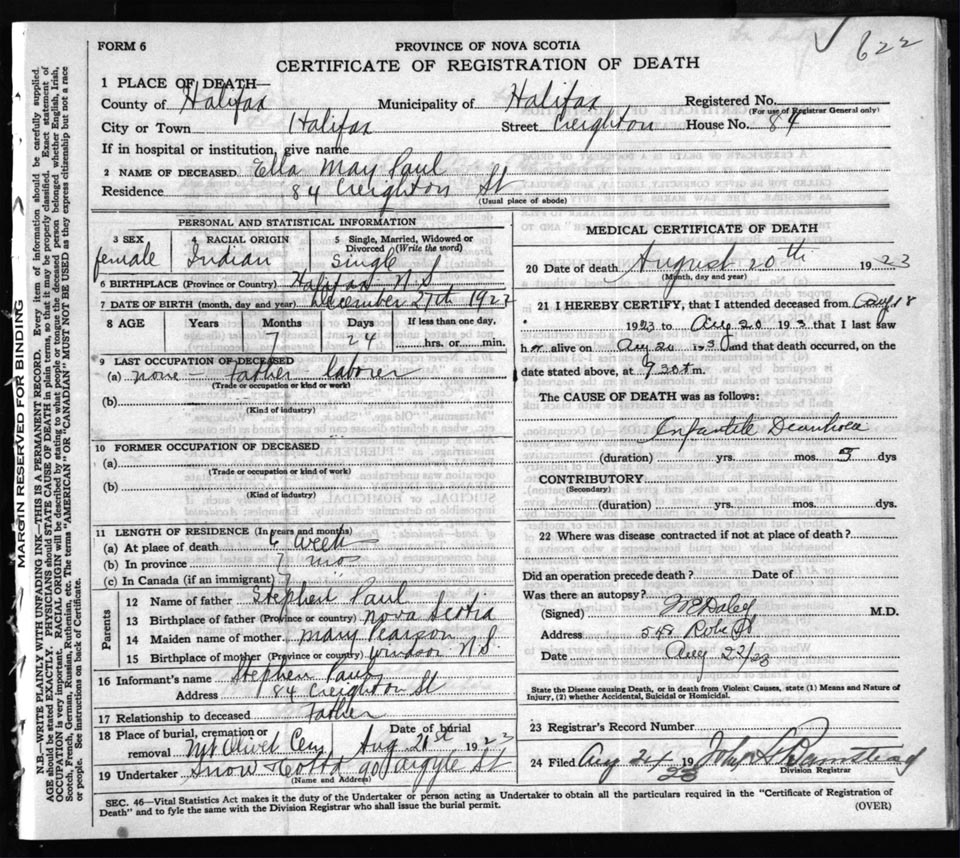 622
FORM 6
PROVINCE OF NOVA SCOTIA
CERTIFICATE OF REGISTRATION OF DEATH
1 PLACE OF DEATH—
County of Halifax Municipality of Halifax Registered No.
(For use of Registrar General only)
City or Town Halifax Street Creighton House No. 84
If in hospital or institution, give name
2 NAME OF DECEASED Ella May Paul
Residence 84 Creighton St
(Usual place of abode)
PERSONAL AND STATISTICAL INFORMATION
3 SEX 4 RACIAL ORIGIN 5 Single, Married, Widowed or Divorced (Write the word)
female Indian Single
6 BIRTHPLACE (Province or Country) Halifax N.S
7 DATE OF BIRTH (month, day and year) December 27th 1922
8 AGE Years Months Days If less than one day,
7 24 hrs. or min.
9 LAST OCCUPATION OF DECEASED
(a) none - Father - laborer
(Trade or occupation or kind or work)
(b)
(Kind of industry)
10 FORMER OCCUPATION OF DECEASED
(a)
(Trade or occupation or kind or work)
(b)
(Kind of industry)
11 LENGTH OF RESIDENCE (In years and months)
(a) At place of death 6 week
(b) In province 7 mo
(c) In Canada (if an immigrant) 7
Parents
12 Name of father Stephen Paul
13 Birthplace of father (Province or country) Nova Scotia
14 Maiden name of mother Mary Pearson
15 Birthplace of mother (Province or country) Windsor N.S.
16 Informant's name Stephen Paul
Address 84 Creighton St
17 Relationship to deceased Father
18 Place of burial, cremation or removal Mt Olivet Cem Date of burial Aug 21st 1923
19 Undertaker Snow & Co Ltd 90 Argyle St
(Name and Address)
MEDICAL CERTIFICATE OF DEATH
20 Date of death August 20th 1923
(Month, day and year)
21 I HEREBY CERTIFY, that I attended deceased from Aug 18
1923 to Aug 20 1923 that I last saw
her alive on Aug 20 1923 and that death occurred, on the
date stated above, at 9 30 m.
The CAUSE OF DEATH was as follows:
Infantile Diarrhoea
(duration) yrs. mos. 5 dys
CONTRIBUTORY
(Secondary)
(duration) yrs. mos. dys.
22 Where was disease contracted if not at place of death?
Did an operation precede death? Date of
Was there an autopsy?
(Signed) Daley M.D.
Address 548 Robie St
Date Aug 22/23
State the Disease causing Death, or in death from Violent Causes, state (1) Means and Nature of
Injury, (2) whether Accidental, Suicidal or Homicidal.
23 Registrar's Record Number
24 Filed Aug 24 1923 John
Division Registrar
SEC. 46—Vital Statistics Act makes it the duty of the Undertaker or person acting as Undertaker to obtain all the particulars required in the "Certificate of Registration of
Death" and to fyle the same with the Division Registrar who shall issue the burial permit.
(OVER)
MARGIN RESERVED FOR BINDING
N.B.—WRITE PLAINLY WITH UNFADING INK—THIS IS A PERMANENT RECORD. Every item of information should be carefully supplied.
AGE should be stated EXACTLY. PHYSICIANS should STATE CAUSE OF DEATH in plain terms, so that it may be properly classified. Exact statement of
OCCUPATION is very important. RACIAL ORIGIN will be described by stating to what people or tongue the deceased person belonged whether English, Irish,
Scotch, French, German, Russian, Ruthenian, etc. The terms "AMERICAN" OR "CANADIAN" MUST NOT BE USED as they express citizenship but not a race
or people. See instructions on back of Certificate.